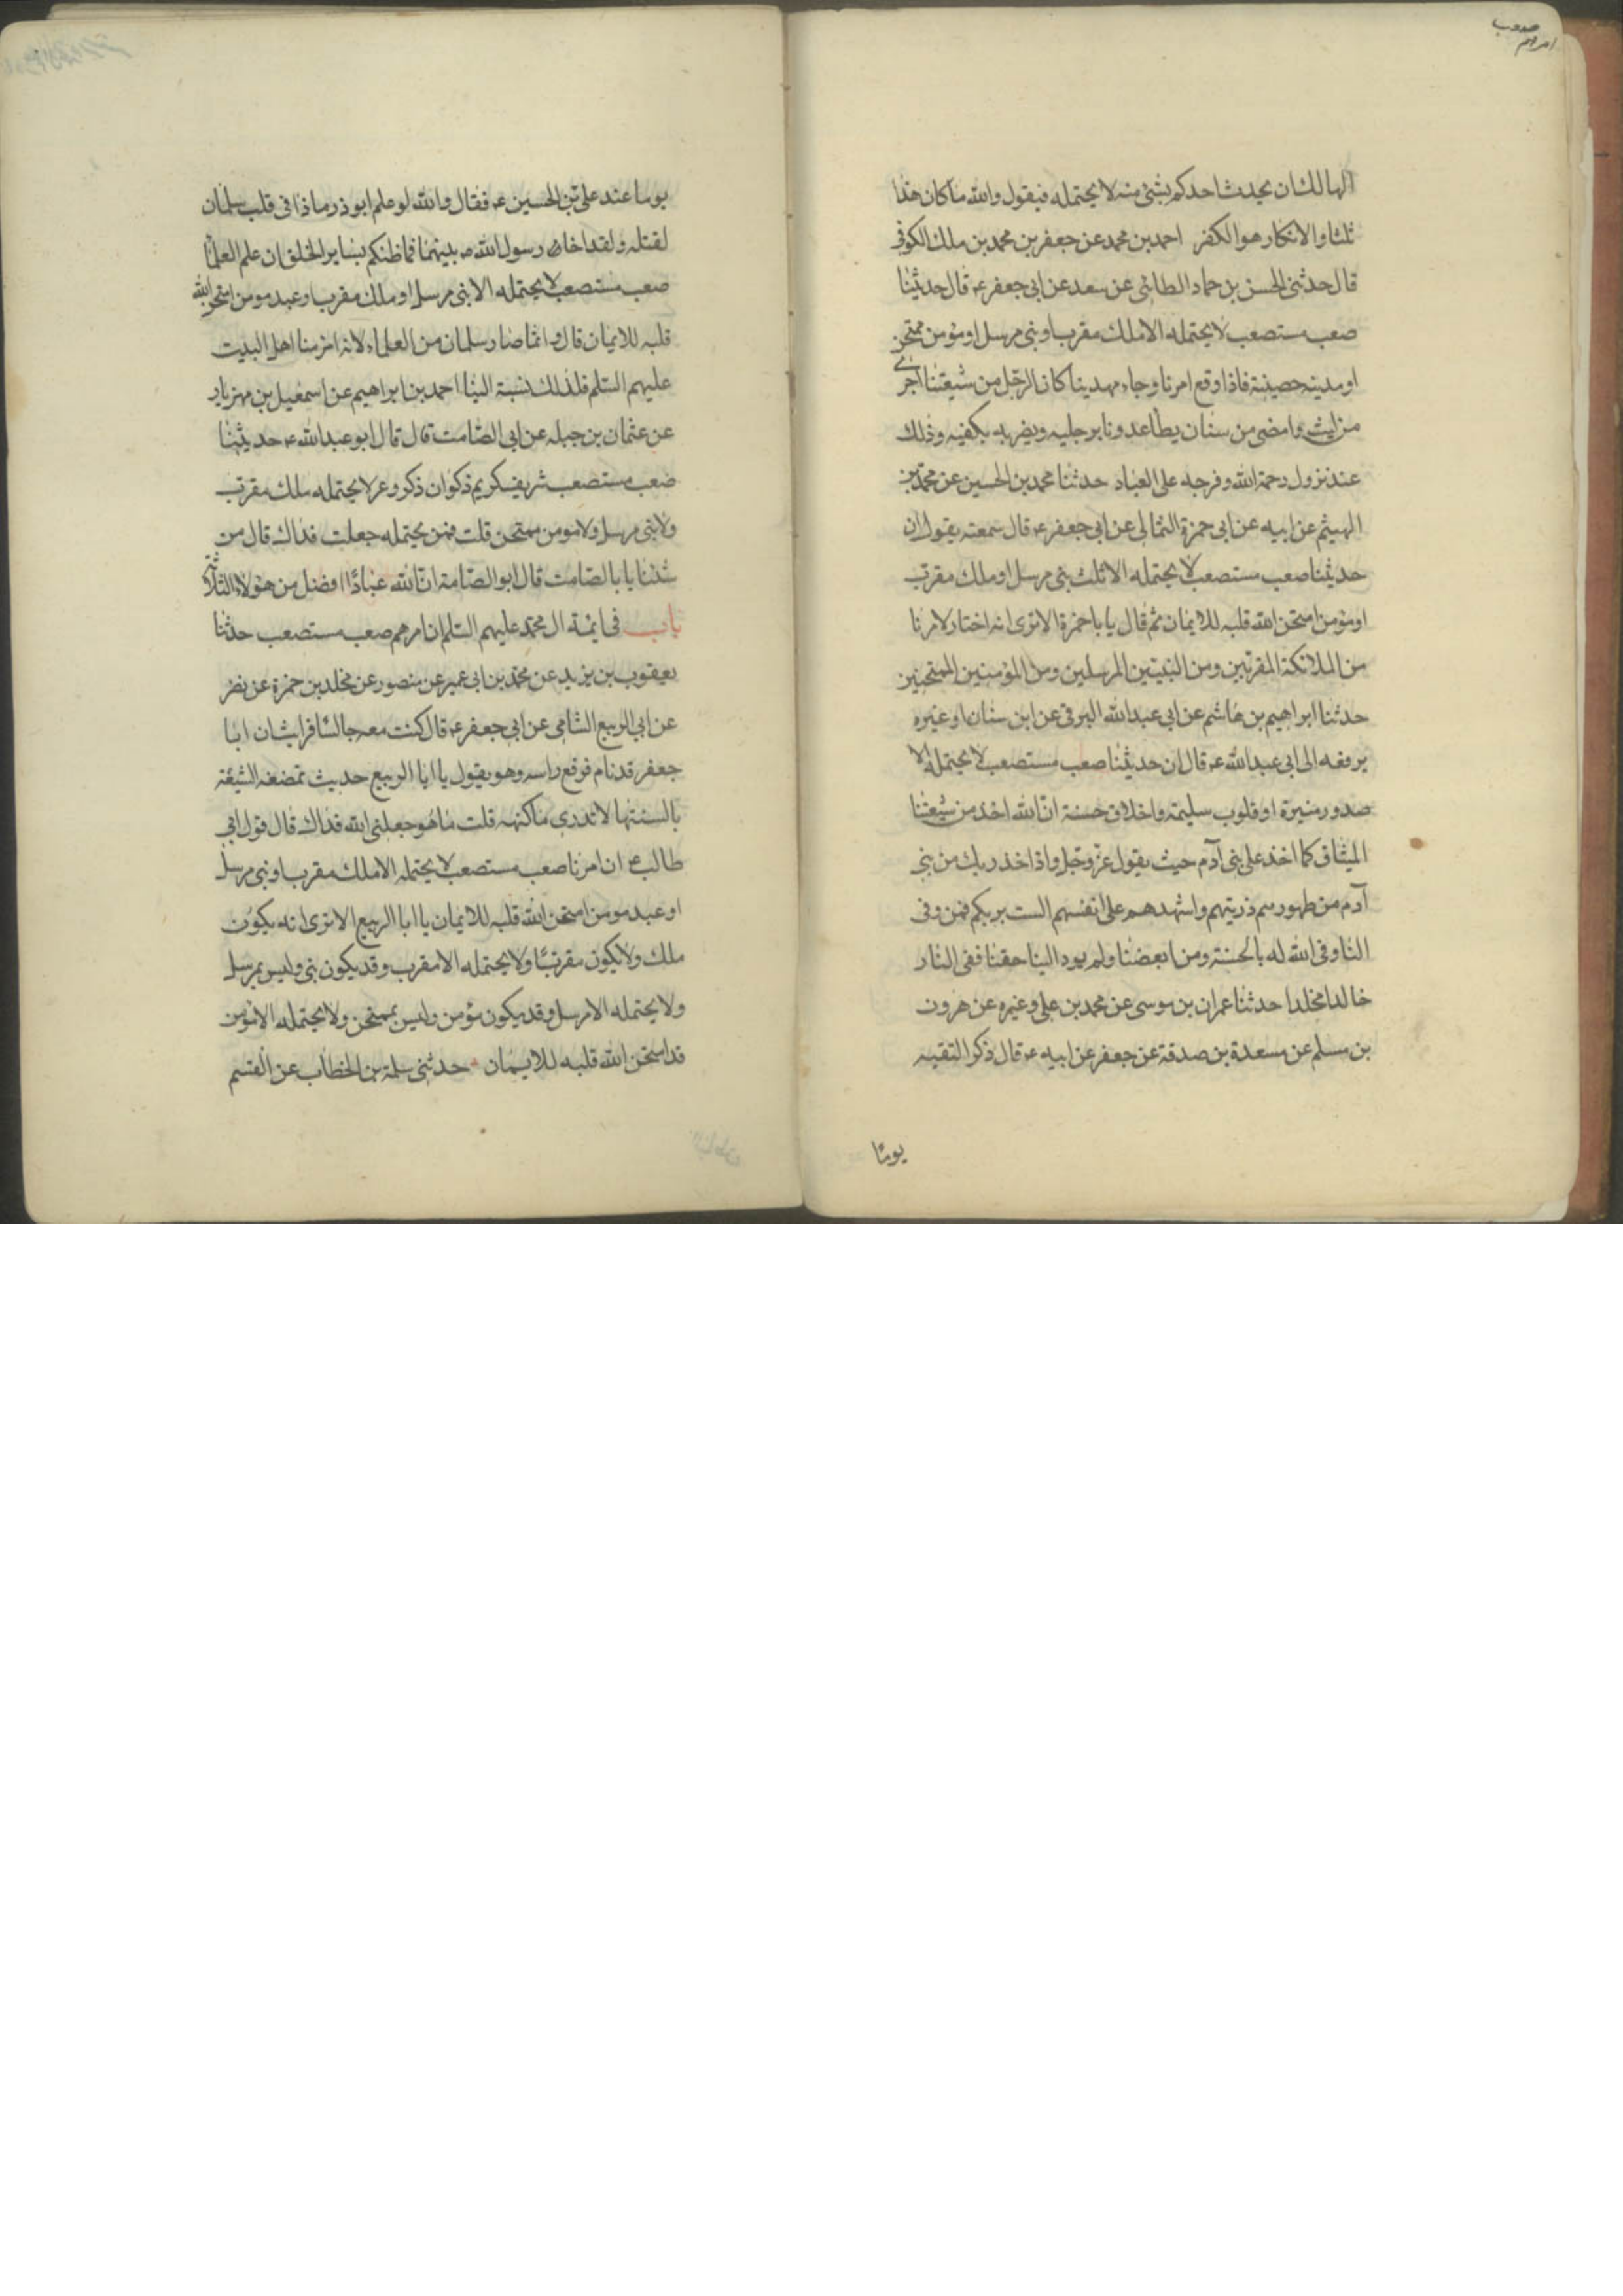 صعب
امرهم
الهالك ان يحدث احدكم بشئ منه لا يحتمله فيقول والله ما كان هذا
ثلثا والانكار هو الكفر احمد بن محمد عن جعفر بن محمد بن ملك الكوفى
قال حدثنى الحسن بن حماد الطائى عن سعد عن ابى جعفر ع قال حديثنا
صعب مستصعب لا يحتمله الا ملك مقرب او نبى مرسل او مؤمن ممتحن
او مدينه حصينة فاذا وقع امرنا وجاء مهدينا كان الرجل من شيعتنا اجرى
من ليث وامضى من سنان يطا عدونا برجليه ويضربه بكفيه وذلك
عند نزول رحمة الله وفرجه على العباد حدثنا محمد بن الحسين عن محمد بن
الهيثم عن ابيه عن ابى حمزة الثمالى عن ابى جعفر ع قال سمعته يقول ان
حديثنا صعب مستصعب لا يحتمله الا ثلث نبى مرسل او ملك مقرب
او مؤمن امتحن الله قلبه للايمان ثم قال يا با حمزة الا ترى انه اختار لامرنا
من الملائكة المقربين ومن النبيين المرسلين ومن المؤمنين الممتحنين
حدثنا ابراهيم بن هاشم عن ابى عبد الله البرقى عن ابن سنان او غيره
يرفعه الى ابى عبد الله ع قال ان حديثنا صعب مستصعب لا يحتمله الا
صدور منيرة او قلوب سليمة واخلاق حسنة ان الله اخذ من شيعتنا
الميثاق كما اخذ على بنى آدم حيث يقول عز وجل واذ اخذ ربك من بنى
آدم من ظهورهم ذريتهم واشهدهم على انفسهم الست بربكم فمن وفى
لنا وفى الله له بالجنة ومن ابغضنا ولم يود الينا حقنا ففى النار
خالدا مخلدا حدثنا عمران بن موسى عن محمد بن على وغيره عن هرون
بن مسلم عن مسعدة بن صدقة عن جعفر عن ابيه ع قال ذكر التقيه
يومًا
يوما عند على بن الحسين ع فقال والله لو علم ابو ذر ما ذا فى قلب سلمان
لقتله ولقد اخا رسول الله ص بينهما فما ظنكم بساير الخلق ان علم العلما
صعب مستصعب لا يحتمله الا نبى مرسل او ملك مقرب او عبد مومن امتحن الله
قلبه للايمان قال وانما صار سلمان من العلماء لانه امرء منا اهل البيت
عليهم السلم فلذلك نسبة الينا احمد بن ابراهيم عن اسمعيل بن مهزيار
عن عثمان بن جبله عن ابى الصامت قال قال ابو عبد الله ع حديثنا
صعب مستصعب شريف كريم ذكوان ذكر وعر لا يحتمله ملك مقرب
ولا نبى مرسل ولا مومن ممتحن قلت فمن يحتمله جعلت فداك قال من
شئنا يا با الصامت قال ابو الصامة ان لله عبادًا افضل من هؤلاء الثلاثة
باب فى ايمة ال محمد عليهم السلم ان امرهم صعب مستصعب حدثنا
يعقوب بن يزيد عن محمد بن ابى عمير عن منصور عن مخلد بن حمزة عن نصر
عن ابى الربيع الشامى عن ابى جعفر ع قال كنت معه جالسا فرايت ان ابا
جعفر قد نام فرفع راسه وهو يقول يا ابا الربيع حديث تمضغه الشيعة
بالسنتها لا تدرى ما كنهه قلت ما هو جعلنى الله فداك قال قول ابى
طالب ع ان امرنا صعب مستصعب لا يحتمله الا ملك مقرب او نبى مرسل
او عبد مومن امتحن الله قلبه للايمان يا ابا الربيع الا ترى انه يكون
ملك ولا يكون مقربًا ولا يحتمله الا مقرب وقد يكون نبى وليس بمرسل
ولا يحتمله الا مرسل وقد يكون مؤمن وليس بممتحن ولا يحتمله الا مؤمن
قد امتحن الله قلبه للايمان حدثنى سلمة بن الخطاب عن القسم